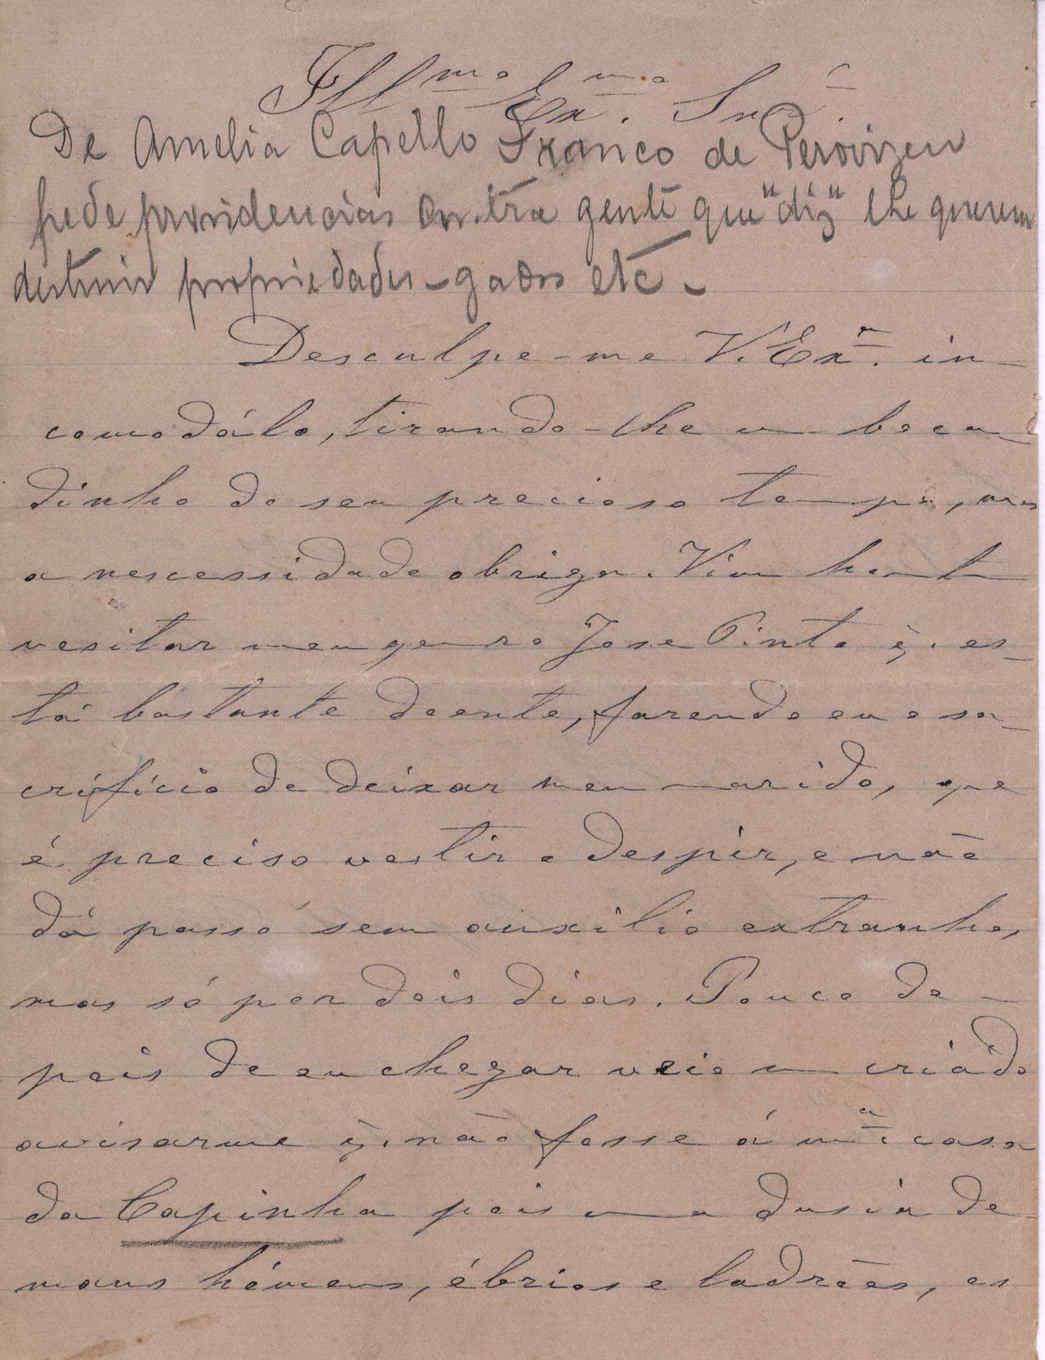 Ill.mo Ex.mo Snr.
De Amelia Capello Franco de
pede providencias contra gente que "diz" lhe querem
destruir propriedades - gados etc -
Desculpe-me V. Ex.a in-
comodá-lo, tirando-lhe um boca-
dinho do seu precioso tempo, mas
a nescessidade obriga. Vim hont
vesitar meu genro Jose Pinto q. es-
tá bastante doente, fazendo eu o sa-
crifício de deixar meu marido, que
é preciso vestir e despir, e não
dá passo sem auxilio extranho,
mas só por dois dias. Pouco de-
pois de eu chegar veio um criado
avisarme q. não fosse á m.a casa
da Capinha pois uma dusia de
maus hómens, ébrios e ladrões, es